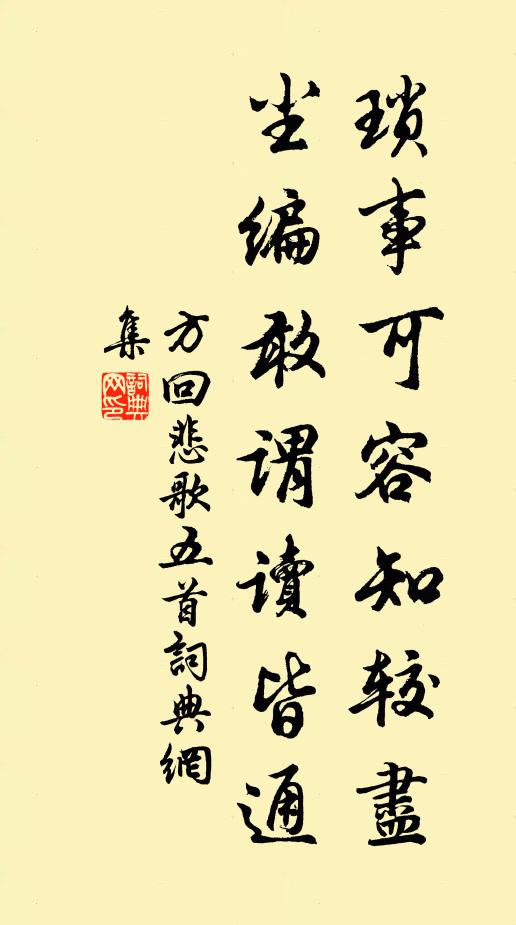 瑣事可容知較盡
尘编敢謂读皆通
方回悲歌五首詞典網
集
詞典网印